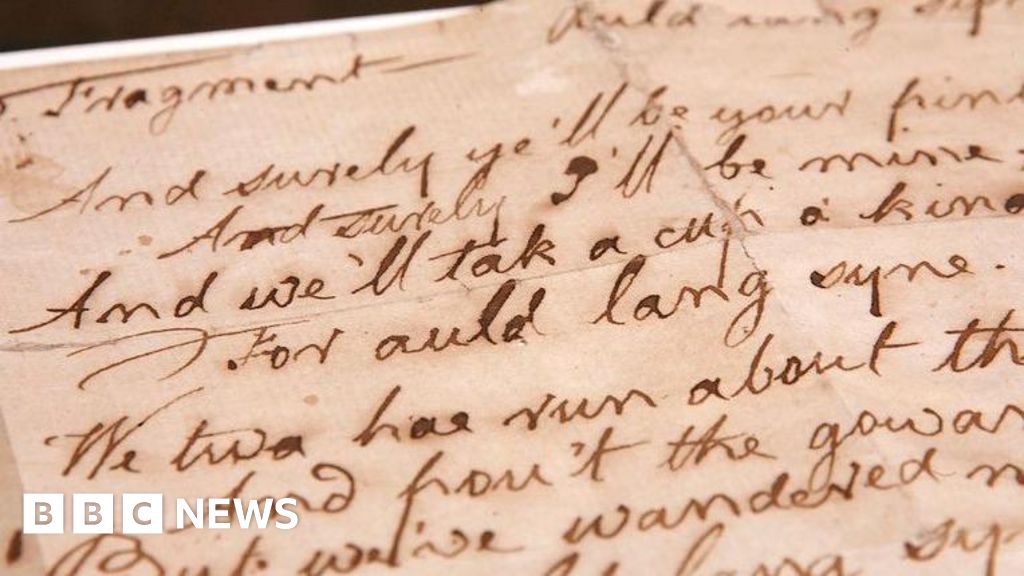 Auld lang syne
Fragment
And surely ye'll be your pint
And surely I'll be mine
And we'll tak a cup o' kind
For auld lang syne.
We twa hae run about th
And pou't the gowan
But we've wandered m
lang sy
BBC NEWS